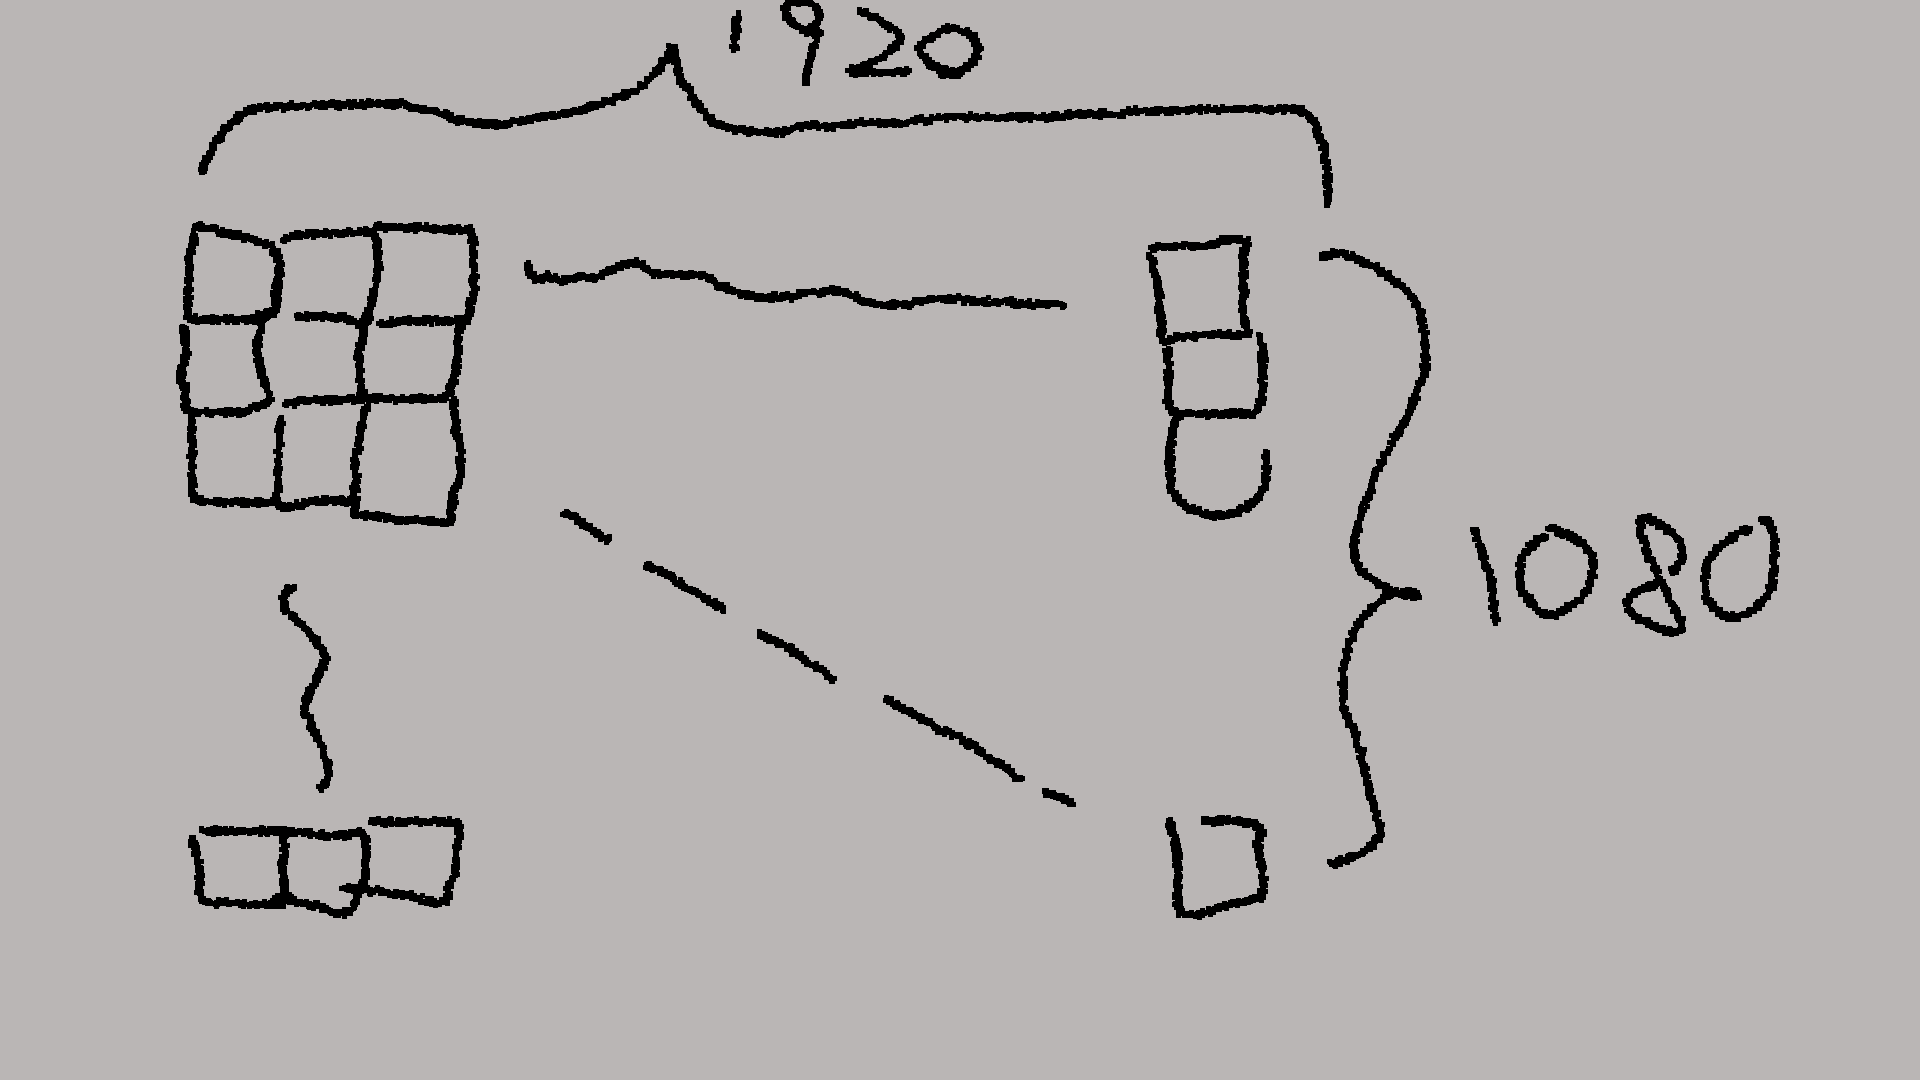 1920
1080